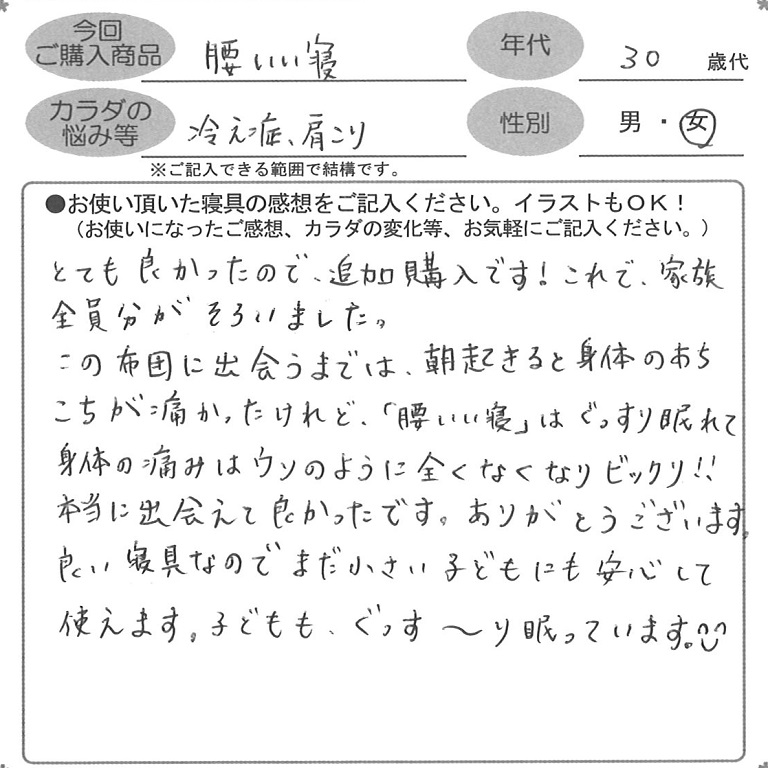 今回
ご購入商品
腰いい寝
年代
30 歳代
カラダの
悩み等
冷え症、肩こり
性別
男・女
※ご記入できる範囲で結構です。
●お使い頂いた寝具の感想をご記入ください。イラストもOK！
（お使いになったご感想、カラダの変化等、お気軽にご記入ください。）
とても良かったので、追加購入です！これで、家族
全員分がそろいました。
この布団に出会うまでは、朝起きると身体のあち
こちが痛かったけれど、「腰いい寝」はぐっすり眠れて
身体の痛みはウソのように全くなくなりビックリ!!
本当に出会えて良かったです。ありがとうございます。
良い寝具なのでまだ小さい子どもにも安心して
使えます。子どもも、ぐっす〜り眠っています。